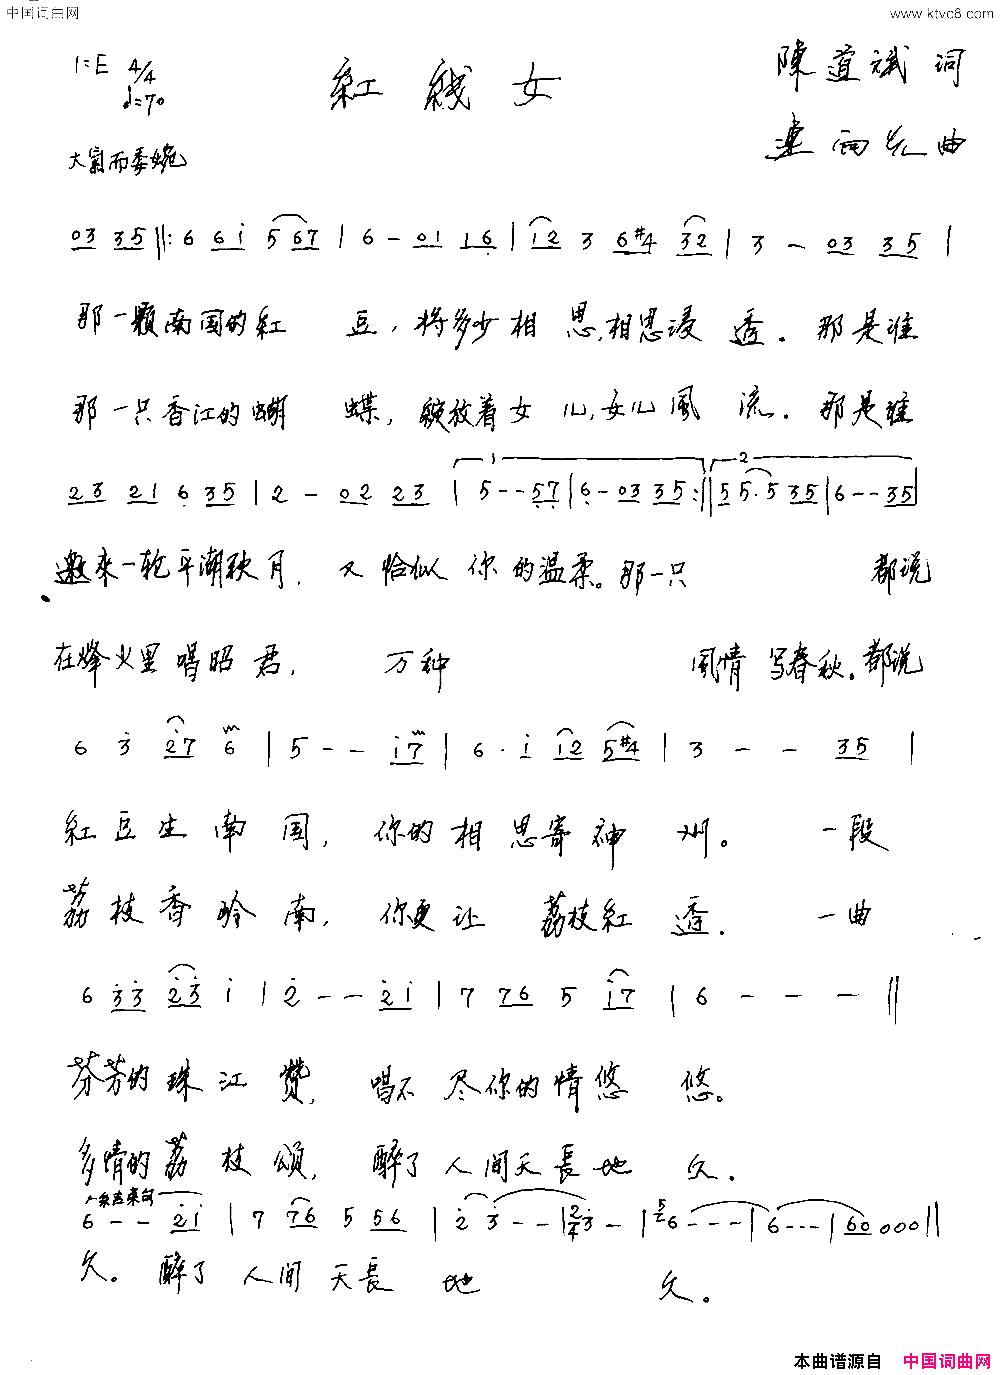 中国词曲网 www.ktvc8.com
1=E 4/4
♩=70
紅綫女
陳道斌 词
連雨先 曲
大氣而委婉
03 35 ‖: 6 6i 5 67 | 6 - 01 16 | i2 3 6#4 32 | 3 - 03 35 |
那一颗南国的紅 豆，将多少相 思,相思浸 透．那是谁
那一只香江的蝴 蝶，绽放着女 儿,女儿風 流．那是谁
23 21 6 35 | 2 - 02 23 | 1 5 - - 57 | 6 - 03 35 :‖ 2 55· 5 35 | 6 - - 35 |
邀來一轮平湖秋月，又 恰似 你 的温柔。那一只 都说
在烽火里唱昭 君， 万种 風情 写春秋．都说
6 3 27 6 | 5 - - i7 | 6 · i i2 5#4 | 3 - - 35 |
紅豆生 南 国，你的 相 思寄神 州。 一段
荔枝香岭南，你更让 荔枝紅 透． 一曲
6 33 23 i | 2 - - 2i | 7 76 5 i7 | 6 - - - ‖
芬芳的 珠 江 赞，唱不 尽你的情悠 悠。
多情的荔 枝 頌，醉了 人間天長地 久．
结束句
6 - - 2i | 7 76 5 56 | 2 3 - - | 2/4 3 - | 6 - - - | 6 - - - | 60 000 ‖
久。 醉了 人間 天長 地 久。
本曲谱源自 中国词曲网